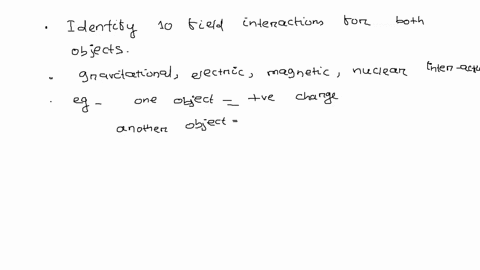 · Identity 10 field interactions for both
objects.
· gravitational, electric, magnetic, nuclear interactu
· eg - one object = +ve change
another object =